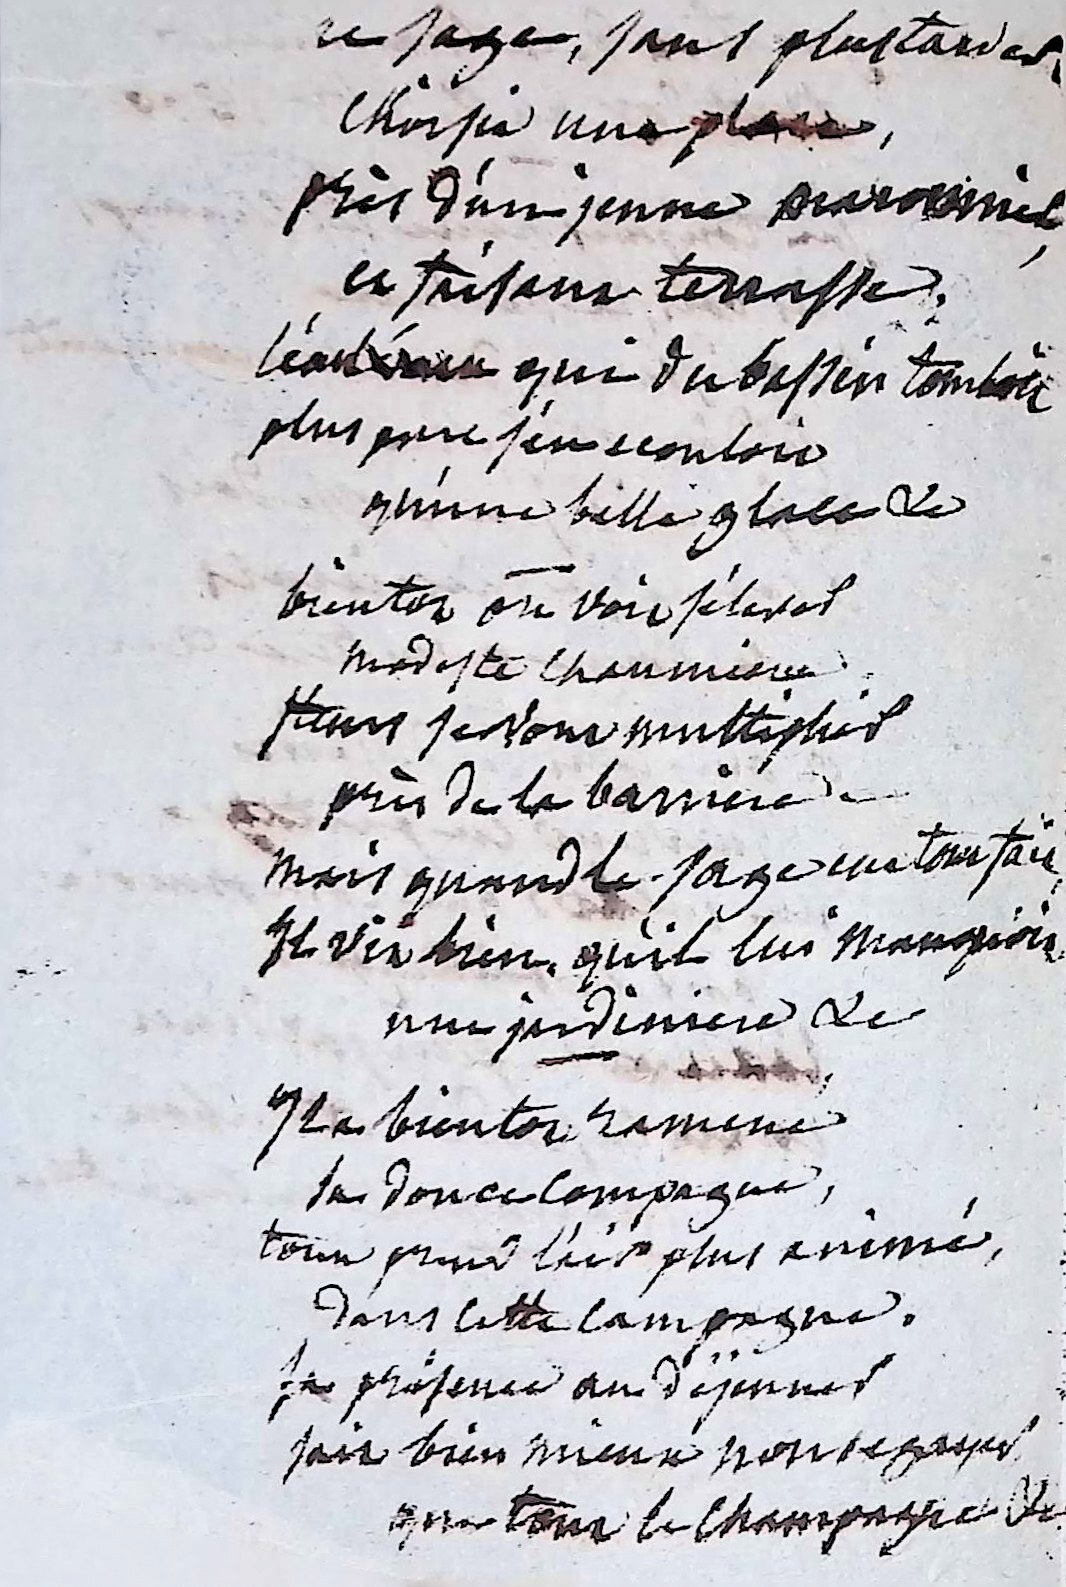 ce sage, sans plus tarder,
Choisie une place,
près d'un jeune maronnier,
en faisant terrasse.
l'eau qui du bassin tomboit
plus pure s'en ecouloit
qu'une belle glace &c
bientot on voit s'elever
modeste chaumiere.
fleurs se vont multiplier
près de la barriere
mais quand le sage eut tout fait,
Il vit bien, qu'il lui manquoit
une jardiniere &c
Il a bientot ramené
sa douce Compagne,
tout prend l'air plus animé,
dans cette campagne.
sa présence au déjeuner
sait bien mieux nous egayer
que tout le champagne &c